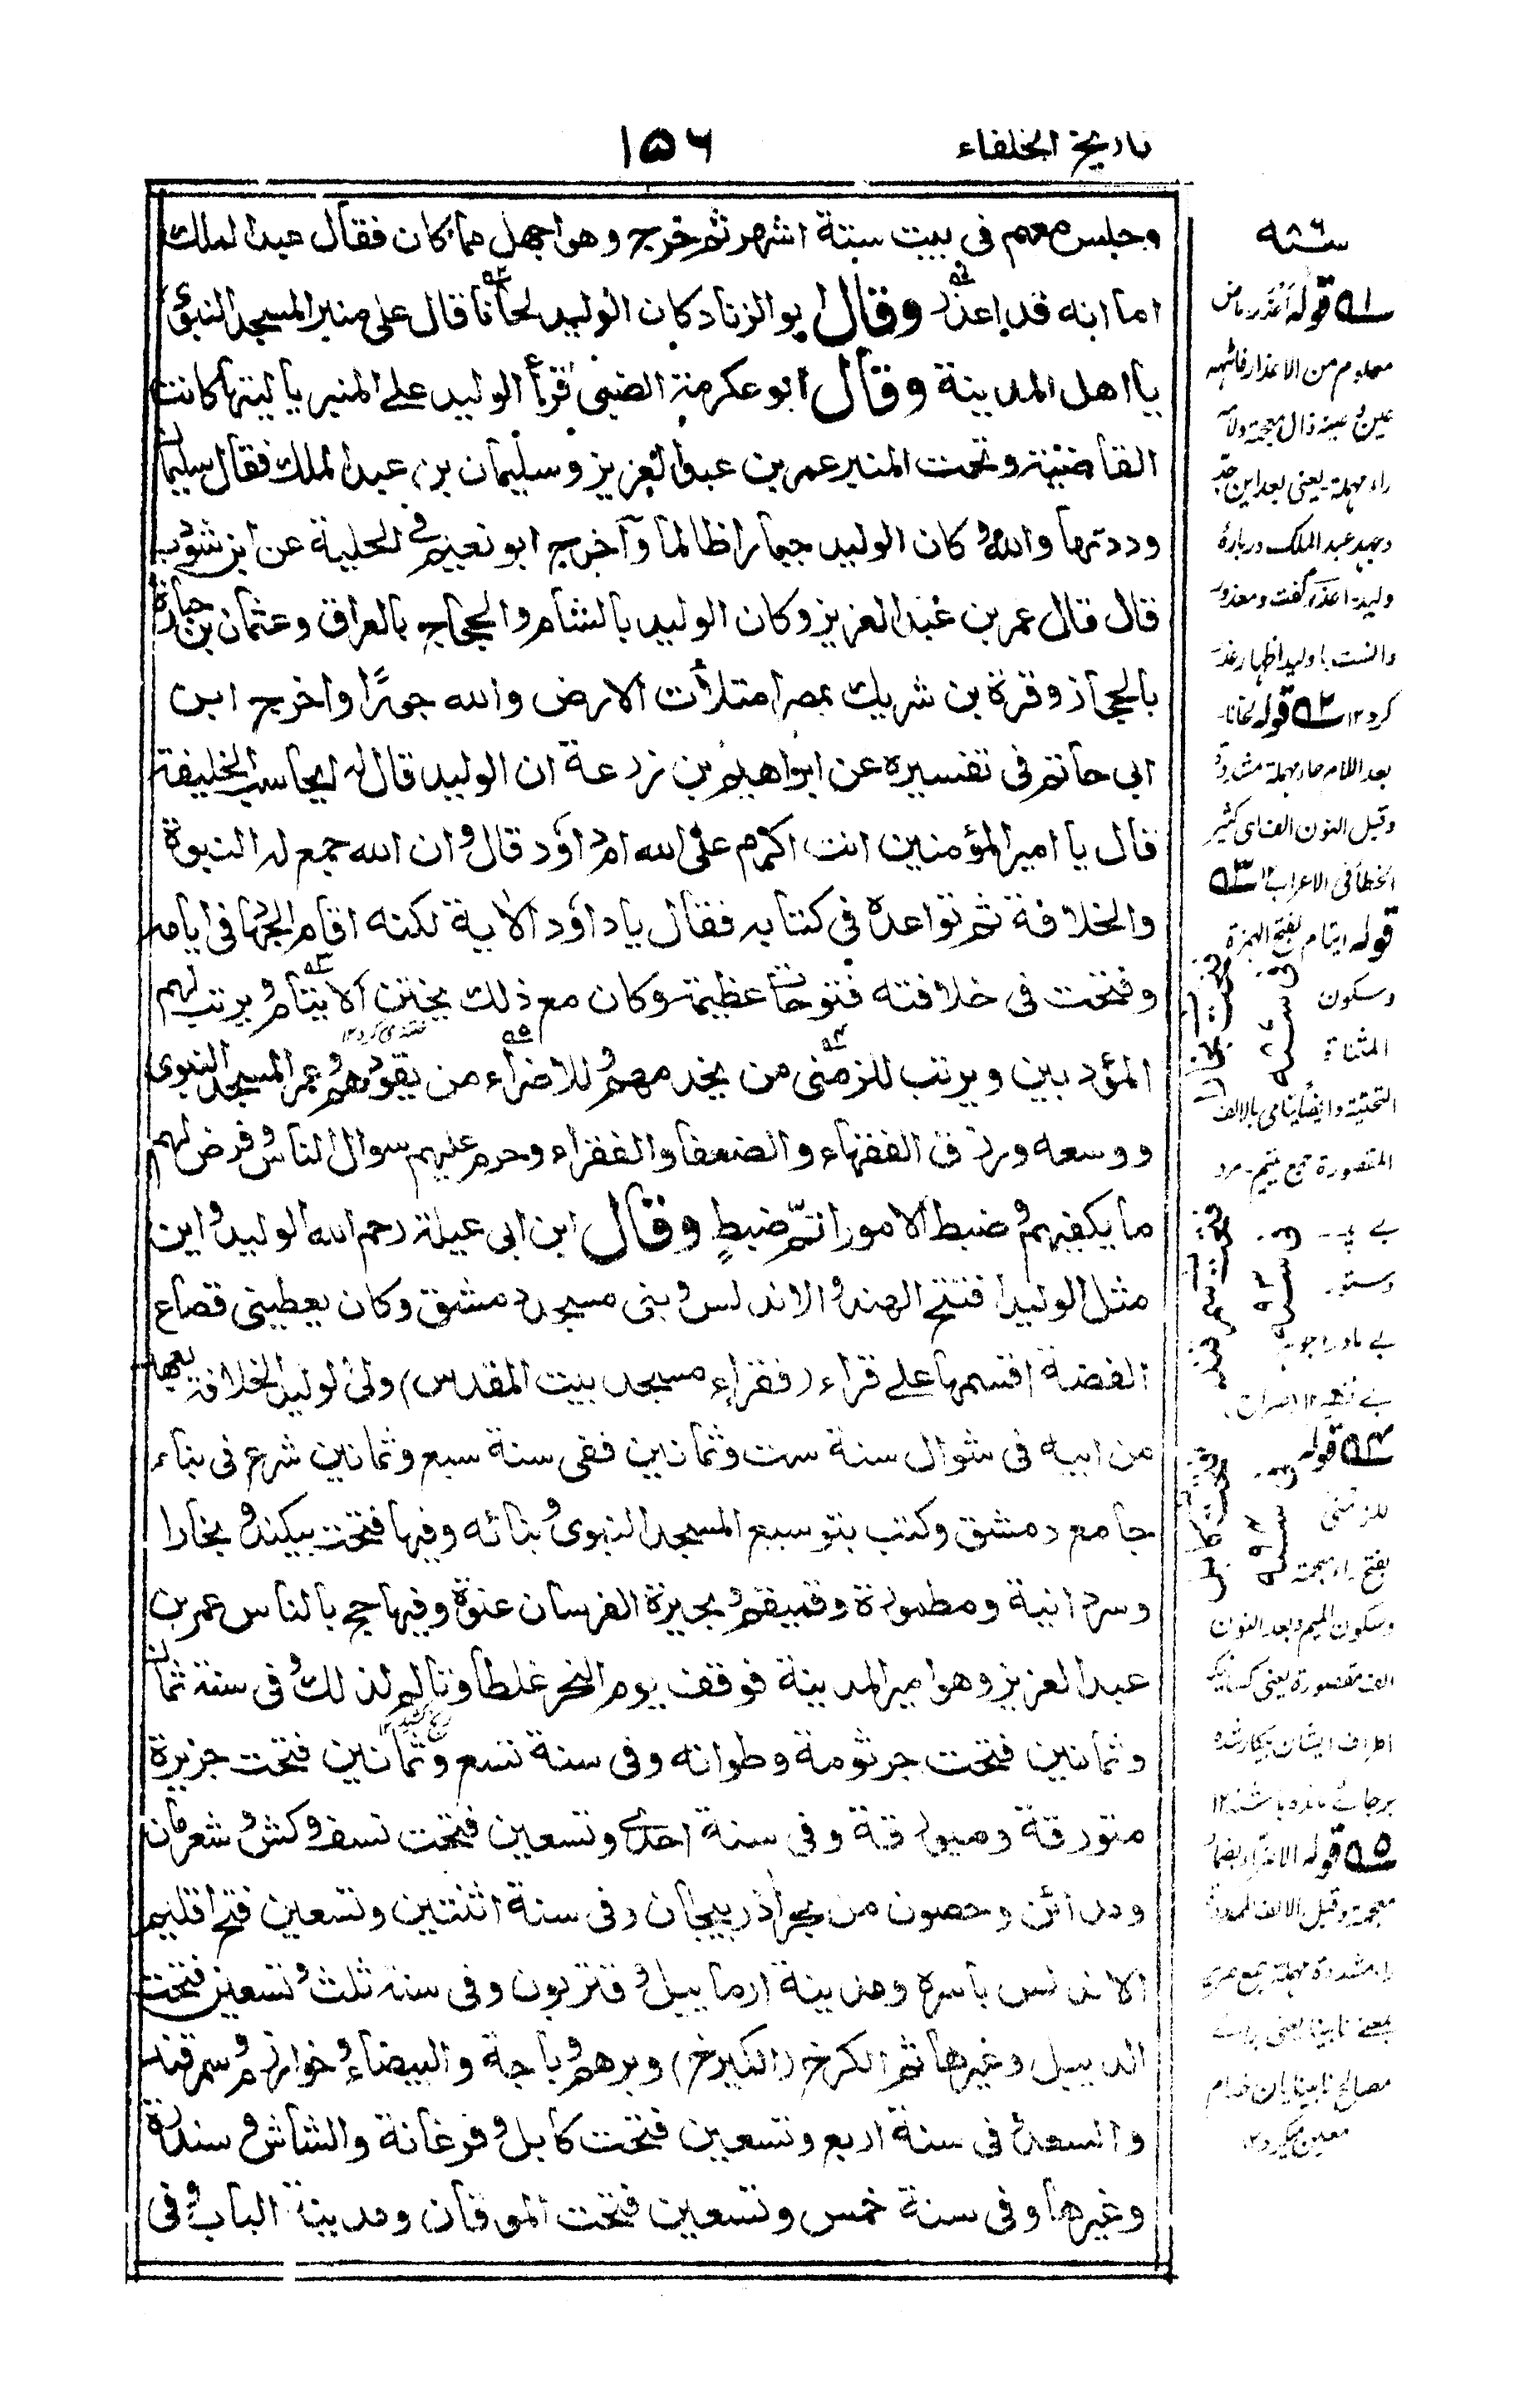 تاريخ الخلفاء
۱۵۶
وجلس معهم فى بيت ستة اشهر ثم خرج وهو اجهل مما كان فقال عبد الملك
اما انه قد اعذر وقال ابو الزناد كان الوليد لحانا قال على منبر المسجد النبوى
يا اهل المدينة وقال ابو عكرمة الضبى قرأ الوليد على المنبر ياليتها كانت
القاضية وتحت المنبر عمر بن عبد العزيز وسليمان بن عبد الملك فقال سليمان
وددتها والله وكان الوليد جبارا ظالما واخرج ابو نعيم فى الحلية عن ابن شوذب
قال قال عمر بن عبد العزيز وكان الوليد بالشام والحجاج بالعراق وعثمان بن حبارة
بالحجاز وقرة بن شريك بمصر امتلأت الارض والله جورًا واخرج ابن
ابى حاتم فى تفسيره عن ابراهيم بن زرعة ان الوليد قال له ايحاسب الخليفة
قال يا امير المؤمنين انت اكرم على الله ام داود قال و ان الله جمع له النبوة
والخلافة ثم تواعده فى كتابه فقال ياداود الآية لكنه اقام الجهاد فى ايامه
وفتحت فى خلافته فتوحات عظيمة وكان مع ذلك يختن الايتام و يرتب لهم
المؤدبين ويرتب للزمنى من يخدمهم و للاضراء من يقودهم و عمر المسجد النبوى
ووسعه ورزق الفقهاء والضعفا والفقراء وحرم عليهم سوال الناس و فرض لهم
ما يكفيهم و ضبط الامور اتمّ ضبطٍ وقال ابن ابى عبلة رحم الله الوليد و اين
مثل الوليد افتتح الهند و الاندلس و بنى مسجد دمشق وكان يعطينى قصاع
الفضة اقسمها على قراء (فقراء) مسجد بيت المقدس) ولى الوليد الخلافة بعهد
من ابيه فى شوال سنة ست وثمانين ففى سنة سبع وثمانين شرع فى بناء
جامع دمشق وكتب بتوسيع المسجد النبوى و بنائه وفيها فتحت بيكند و بخارا
وسردانية ومطمورة وقميقم و بحيرة الفرسان عنوة وفيها حج بالناس عمر بن
عبد العزيز وهو امير المدينة فوقف يوم النحر غلطا وتألم لذلك و فى سنة ثمان
وثمانين فتحت جرثومة وطوانه وفى سنة تسع وثمانين فتحت جزيرة
منورقة وميورقة وفى سنة احدى وتسعين فتحت نسف و كش و شعرمان
ومدائن وحصون من بحر اذربيجان وفى سنة اثنتين وتسعين فتح اقليم
الاندلس باسره ومدينة ارمابيل و قتربون وفى سنة ثلث و تسعين فتحت
الديبل وغيرها ثم الكرخ (الكيرخ) وبرهم و باجة والبيضاء و خوارزم و سمرقند
والسغد و فى سنة اربع وتسعين فتحت كابل و فرغانة والشاش و سندرة
وغيرها وفى سنة خمس وتسعين فتحت الموقان ومدينة الباب و فى
سنه ۸۶
قوله اعذر ماض
معلوم من الاعذار فائهه
راء مهملة يعنى بعد ازين
عبد الملك درباره
وليد اعذر گفت ومعذور
كرد ۱۲ قوله لحانا
بعد اللام حاء مهملة مشددة
وقبل النون الف اى كثير
الخطأ فى الاعراب ۱۲
قوله ايتام بفتح الهمزة
وسكون
المثناة
التحتية وايضا يتامى بالالف
المقصورة جمع يتيم
قوله
للزمنى
وسكون الميم وبعد النون
الف مقصورة يعنى
قوله الاضراء
معجمة وقبل الالف الممدودة
راء مشددة مهملة جمع ضرير
بمعنى نابينا يعنى براى
مصالح نابينايان خدام
معين ميكرد ۱۲